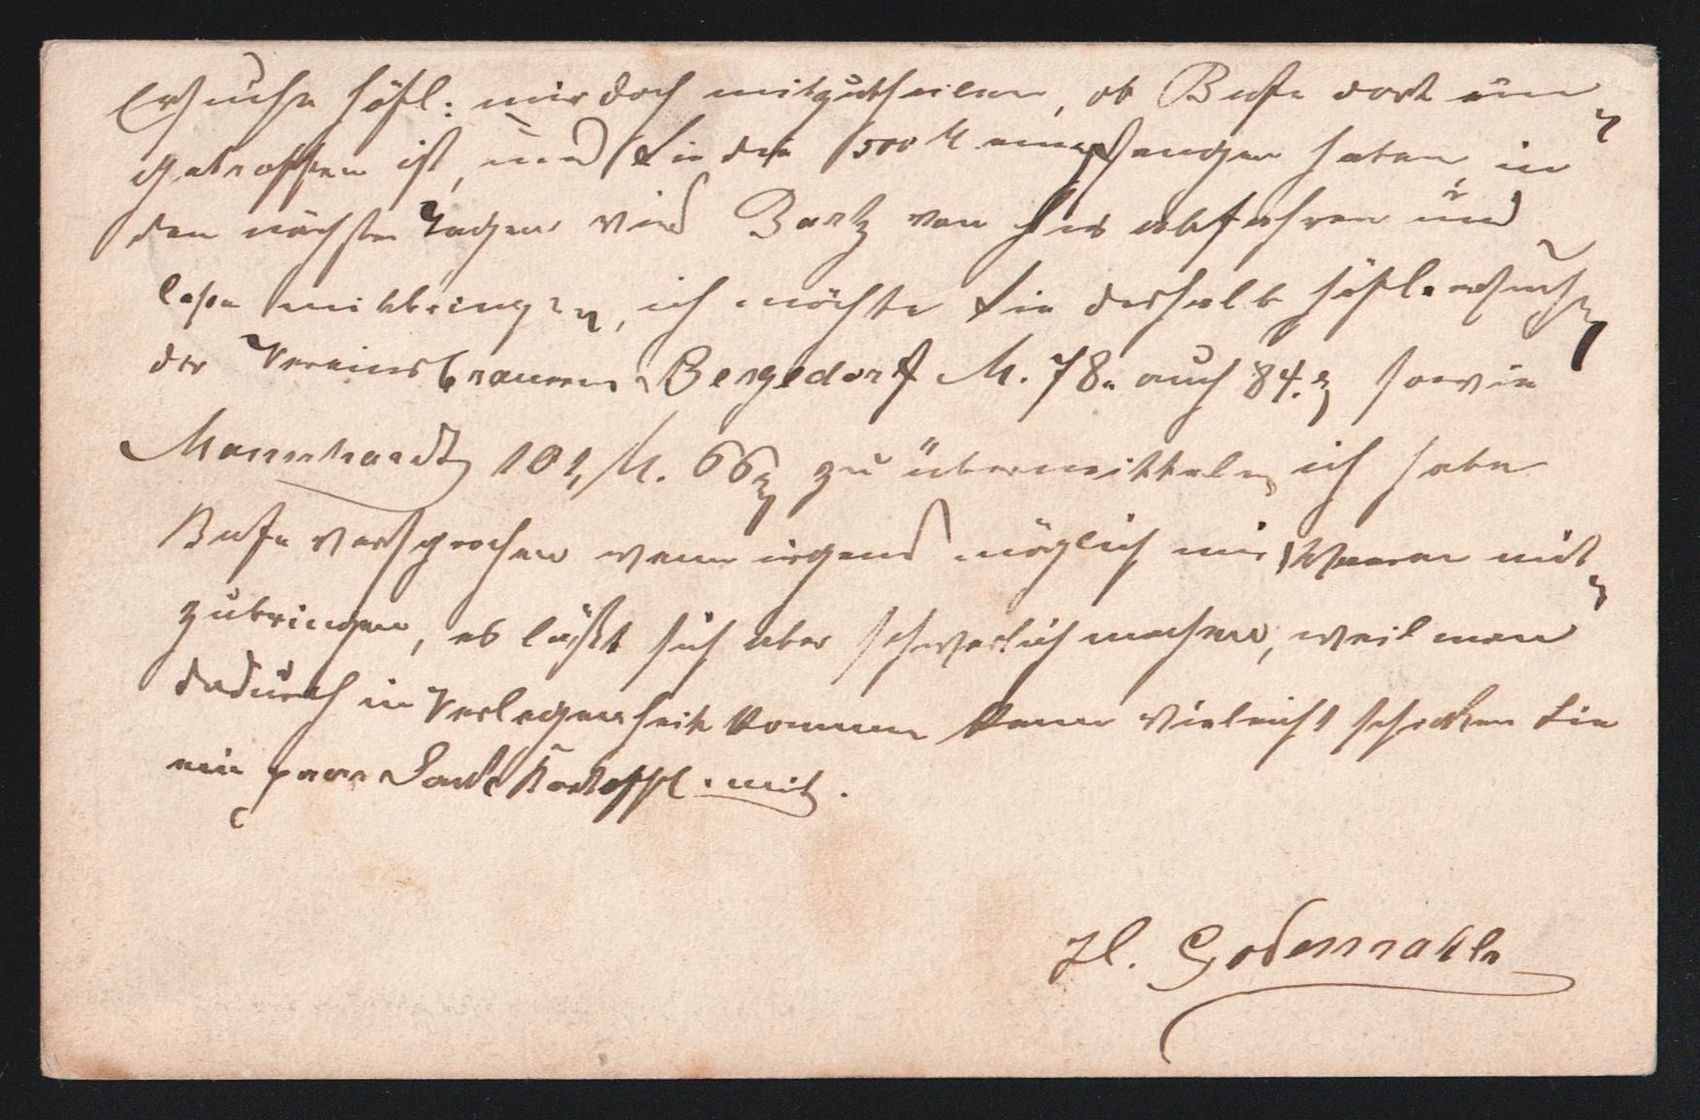 Ersuche höfl: mir doch mitzutheilen, ob Buse dort ein-
getroffen ist, und Sie die 1500 M empfangen haben, in
den nächsten Tagen wird Bartz von hier abfahren und
mitbringen, ich möchte Sie deshalb höfl. ersuchen
der Vereinsbrauerei Bergedorf M. 78. auch 84. sowie
Mannhardt 101, M. 66 zu übermitteln, ich habe
Buse versprochen wenn irgend möglich mir Waaren mit-
zubringen, es läßt sich aber schwerlich machen, weil man
dadurch in Verlegenheit kommen kann vieleicht schicken Sie
ein paar Sack Kartoffel mit.
H.